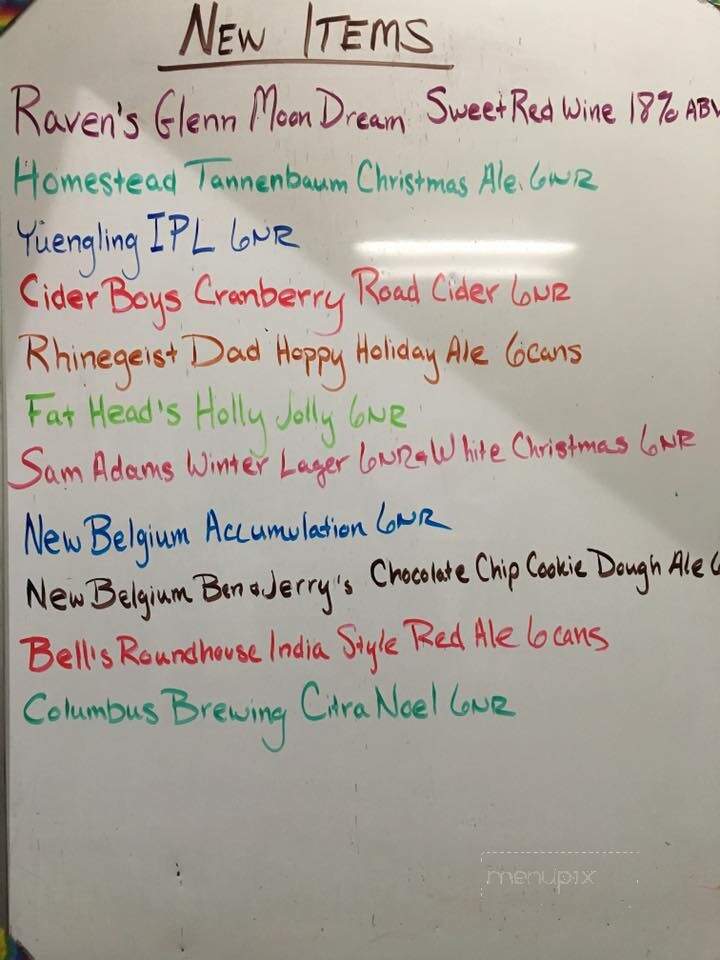 New Items
Raven's Glenn Moon Dream Sweet Red Wine 18% ABV
Homestead Tannenbaum Christmas Ale. 6NR
Yuengling IPL 6NR
Cider Boys Cranberry Road Cider 6NR
Rhinegeist Dad Hoppy Holiday Ale 6cans
Fat Head's Holly Jolly 6NR
Sam Adams Winter Lager 6NR & White Christmas 6NR
New Belgium Accumulation 6NR
New Belgium Ben & Jerry's Chocolate Chip Cookie Dough Ale 6
Bell's Roundhouse India Style Red Ale 6cans
Columbus Brewing Citra Noel 6NR
menupix